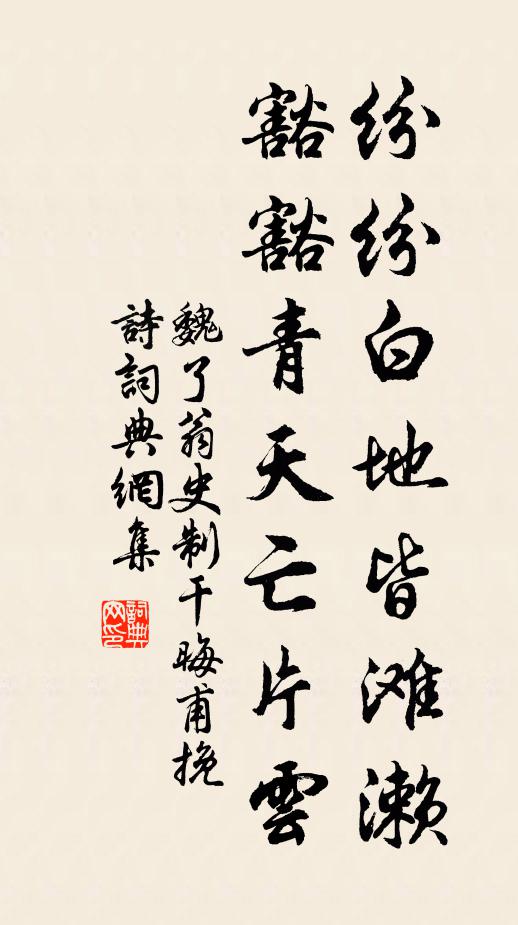 纷纷白地皆滩濑
豁豁青天亡片雲
魏了翁史制干晦甫挽
詩詞典網集
詞典网印